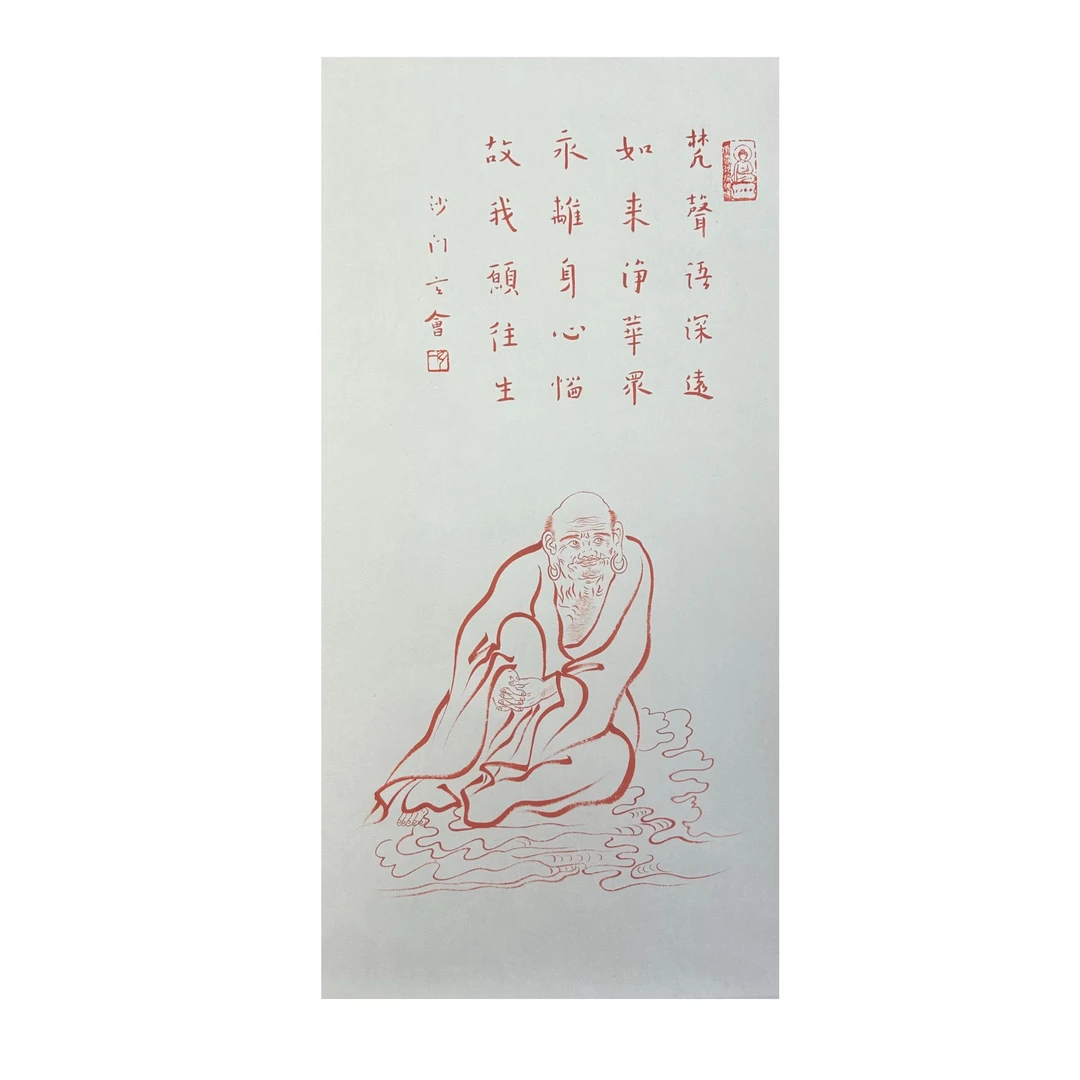 梵聲语深遠
如来净華眾
永離身心惱
故我願往生
沙门玄會